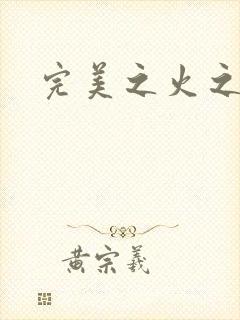 完美之火之
黄宗羲